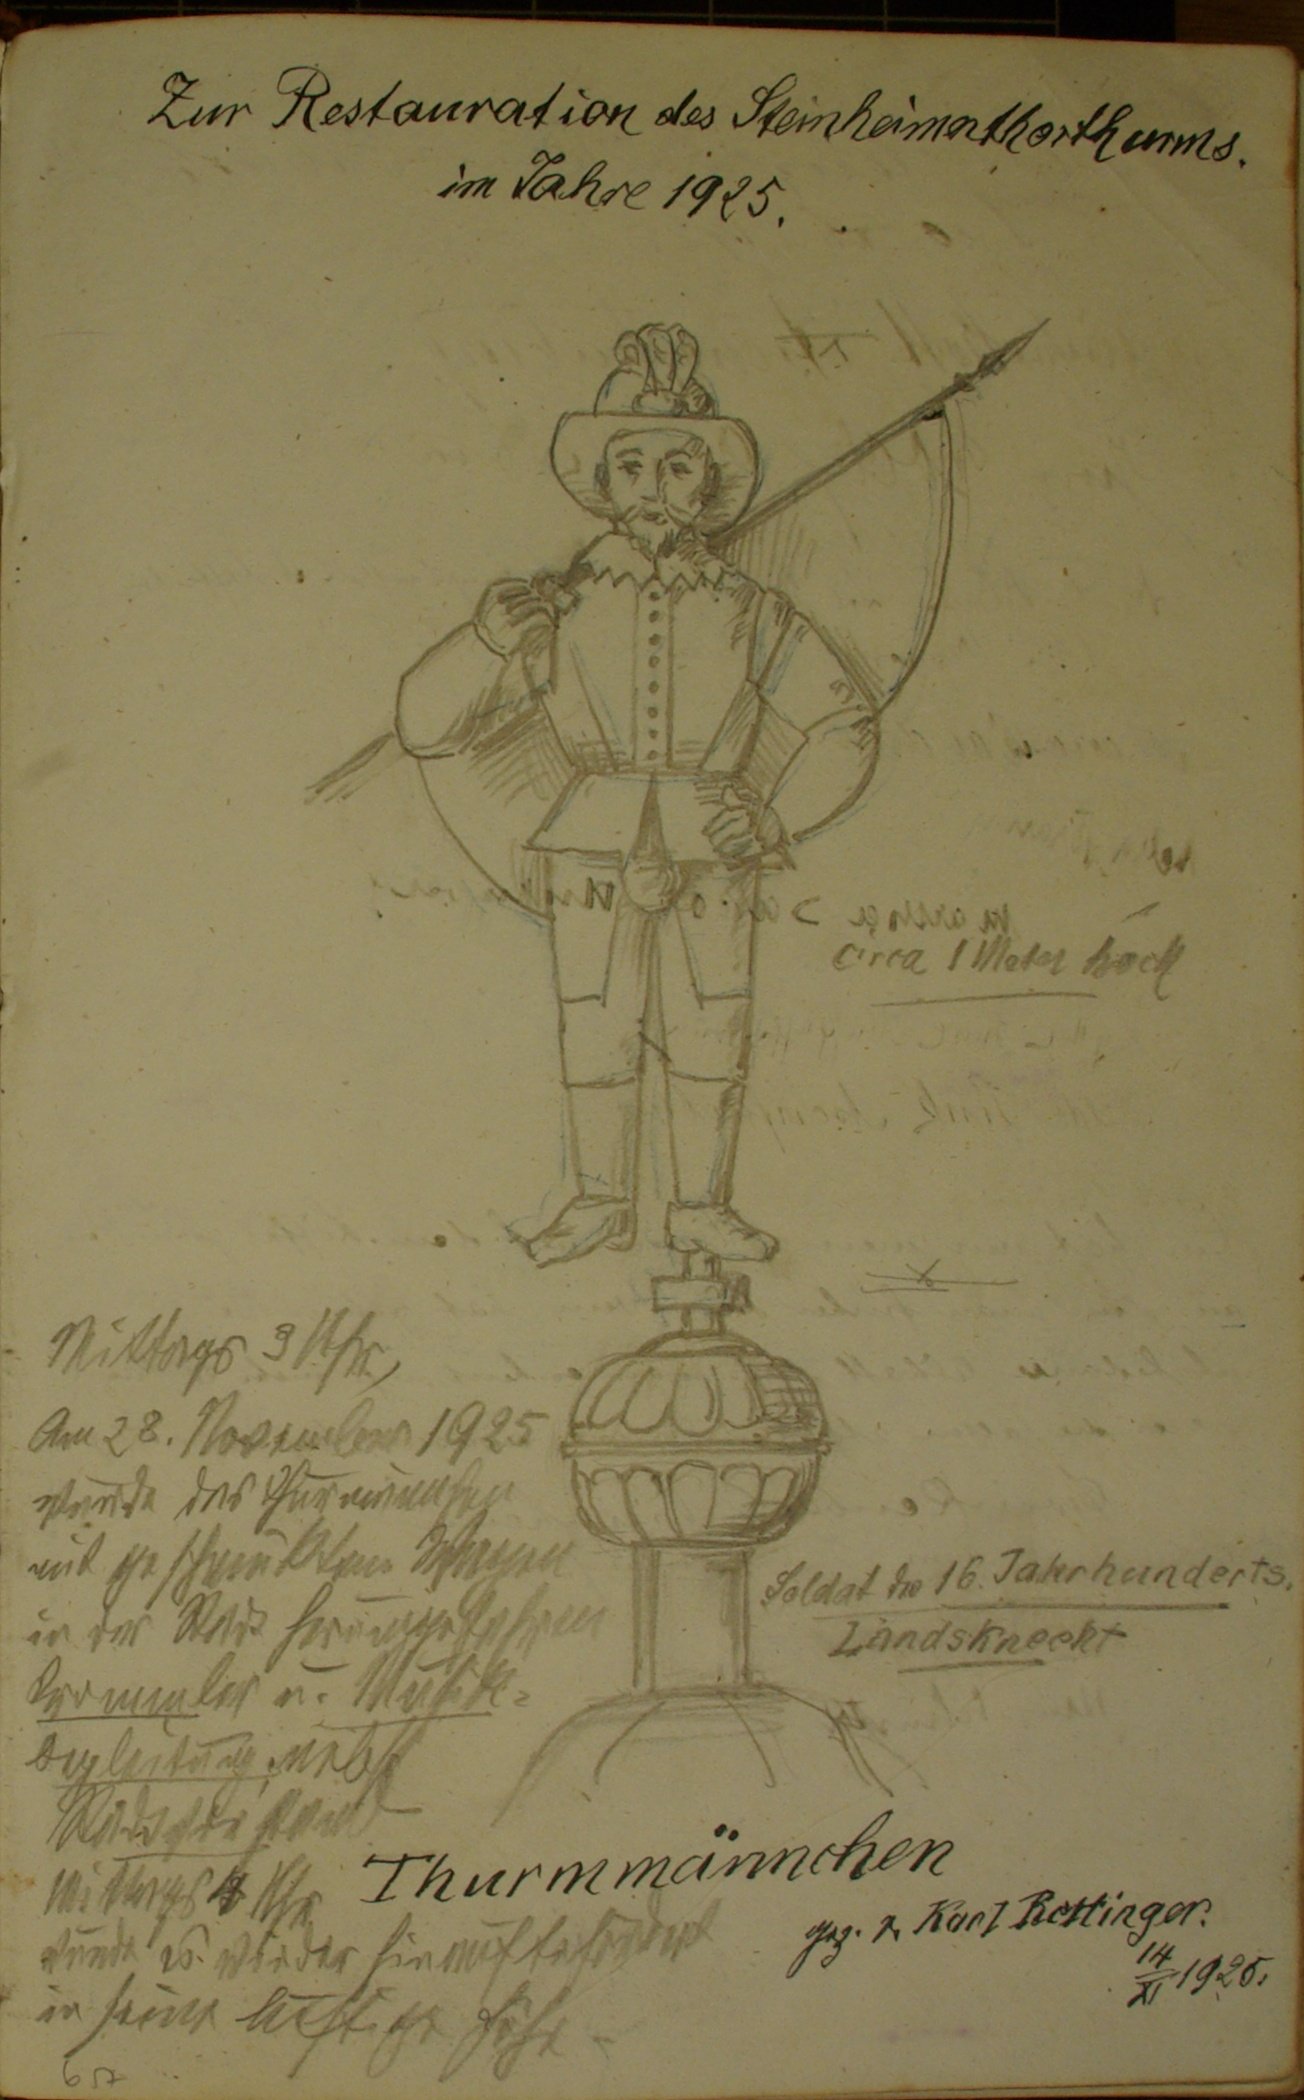 Zur Restauration des Steinheimerthorthurms.
im Jahre 1925.
circa 1 Meter hoch
Mittags 3 Uhr,
Am 28. November 1925
wurde das Thurmmännchen
mit geschmücktem Wagen
in der Stadt herumgefahren
Trommler u. Musik-
begleitung, nebst
Mittags 4 Uhr
wurde es wieder hinaufbefördert
in seine luftige Höhe -
Soldat des 16. Jahrhunderts.
Landsknecht
Thurmmännchen
gez. v. Karl Rettinger.
14/XI 1925.